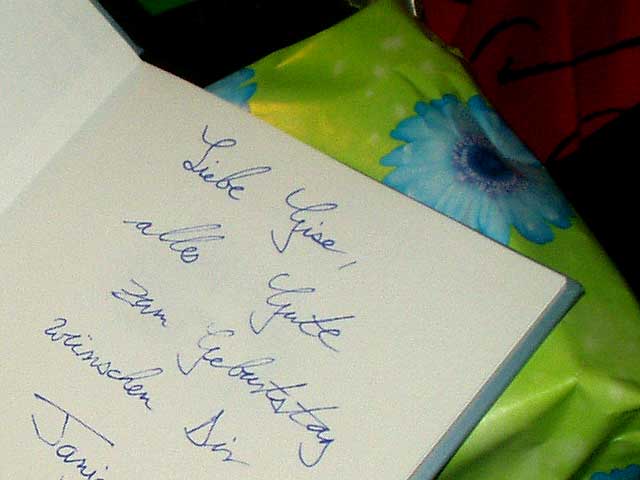 Liebe Gise,
alles Gute
zum Geburtstag
wünschen Dir